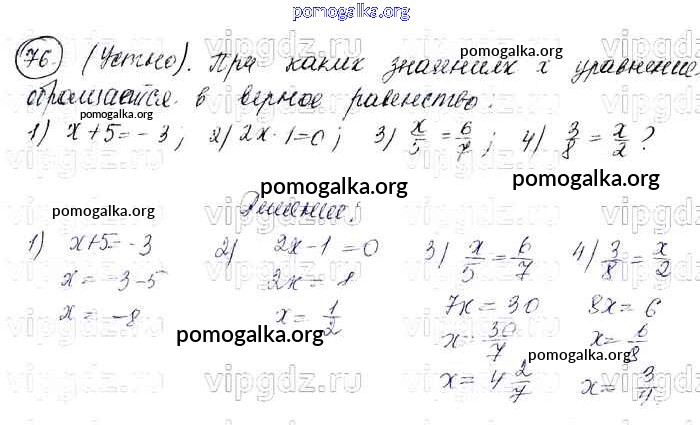 pomogalka.org
76. (Устно). При каких значениях x уравнение
обращается в верное равенство:
1) x+5=-3; 2) 2x-1=0; 3) x/5 = 6/7; 4) 3/8 = x/2?
pomogalka.org
pomogalka.org pomogalka.org
Решение:
pomogalka.org
1) x+5=-3 2) 2x-1=0 3) x/5 = 6/7 4) 3/8 = x/2
x=-3-5 2x=1 7x=30 8x=6
x=-8 x=1/2 x=30/7 x=6/8
pomogalka.org
pomogalka.org
x=4 2/7 x=3/4
vipgdz.ru vipgdz.ru vipgdz.ru